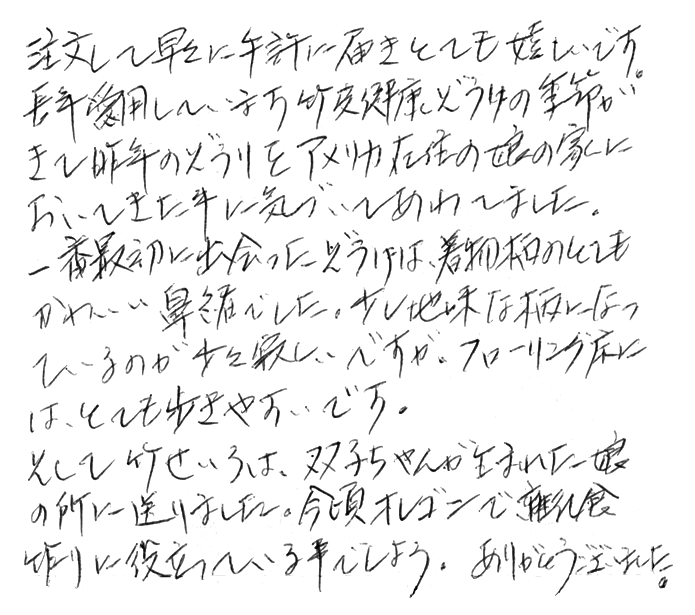 注文して早々に手許に届きとても嬉しいです。
長年愛用しています竹皮健康ぞうりの季節が
きて昨年のぞうりをアメリカ在住の娘の家に
おいてきた事に気づいてあわてました。
一番最初に出会ったぞうりは、着物柄のとても
かわいい鼻緒でした。少し地味な柄になっ
ているのが少々寂しいですが、フローリング床に
は、とても歩きやすいです。
そして竹せいろは、双子ちゃんが生まれた娘
の所に送りました。今頃オレゴンで離乳食
作りに役立っている事でしょう。ありがとうございました。